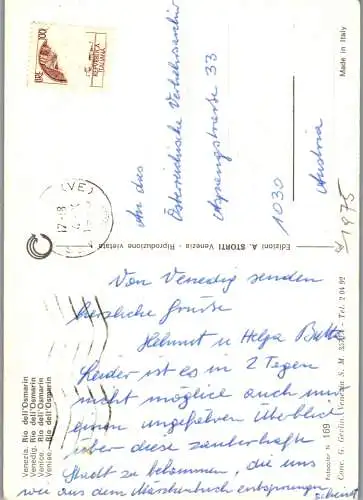 Venezia. Rio dell'Osmarin
Venedig. Rio dell'Osmarin
Venice. Rio dell'Osmarin
Venise. Rio dell'Osmarin
Von Venedig senden
herzliche Grüsse
Helmut u Helga
Leider ist es in 2 Tagen
nicht möglich auch nur
einen ungefähren Überblick
über diese zauberhafte
Stadt zu bekommen, die uns
wie aus dem Märchenbuch entsprungen
Fotocolor N. 169
Conc. G. Gerlin - Venezia S. M. - Tel. 2 04 92
Edizioni A. STORTI Venezia - Riproduzione vietata
LIRE 100
REPUBBLICA
ITALIANA
(VE)
17-18
An das
Österreichische Verkehrsarchiv
Aspangstrasse 33
1030
Austria
1975
Made in Italy